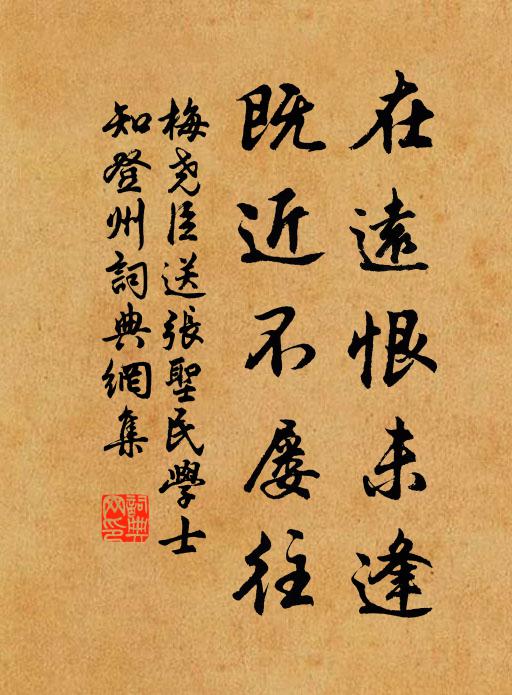 在遠恨未逢
既近不屡往
梅尧臣送張聖民學士
知登州詞典網集
詞典
网印